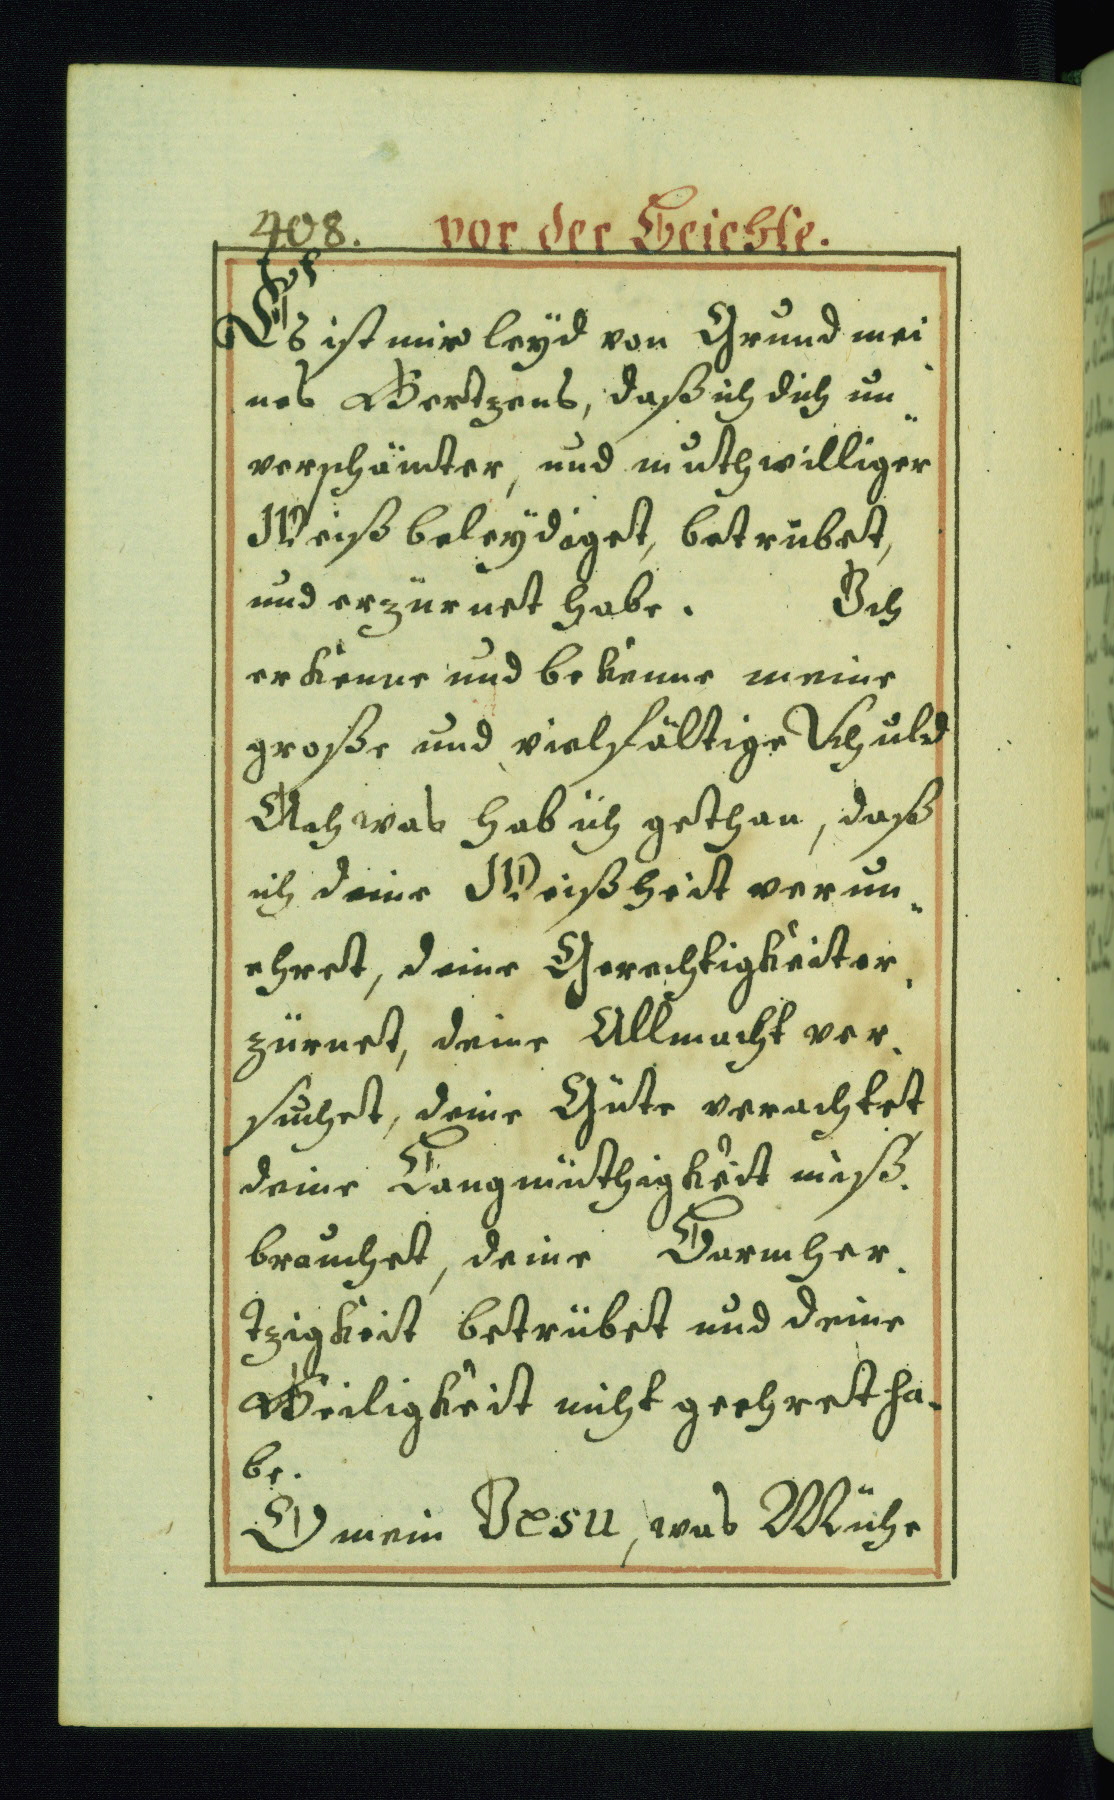 408. vor der Beichte.
Es ist mir leyd von Grund mei
nes Hertzens, daß ich dich un„
verschämter, und muthwilliger
Weiß beleydiget, betrübet,
und erzürnet habe. Ich
erkenne und bekenne meine
große und vielfältige Schuld
Ach was hab ich gethan, daß
ich deine Weißheit verun„
ehret, deine Gerechtigkeit er„
zürnet, deine Allmacht ver„
suchet, deine Güte verachtet
deine Langmüthigkeit miß„
brauchet, deine Barmher„
tzigkeit betrübet und deine
Heiligkeit nicht geehret ha„
be.
O mein Jesu, was Mühe